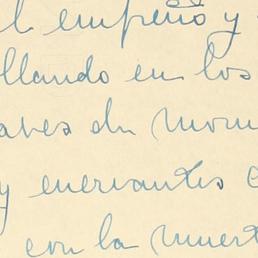 el empeño y
llando en los
aves du mom
y enervantes c
con la muert